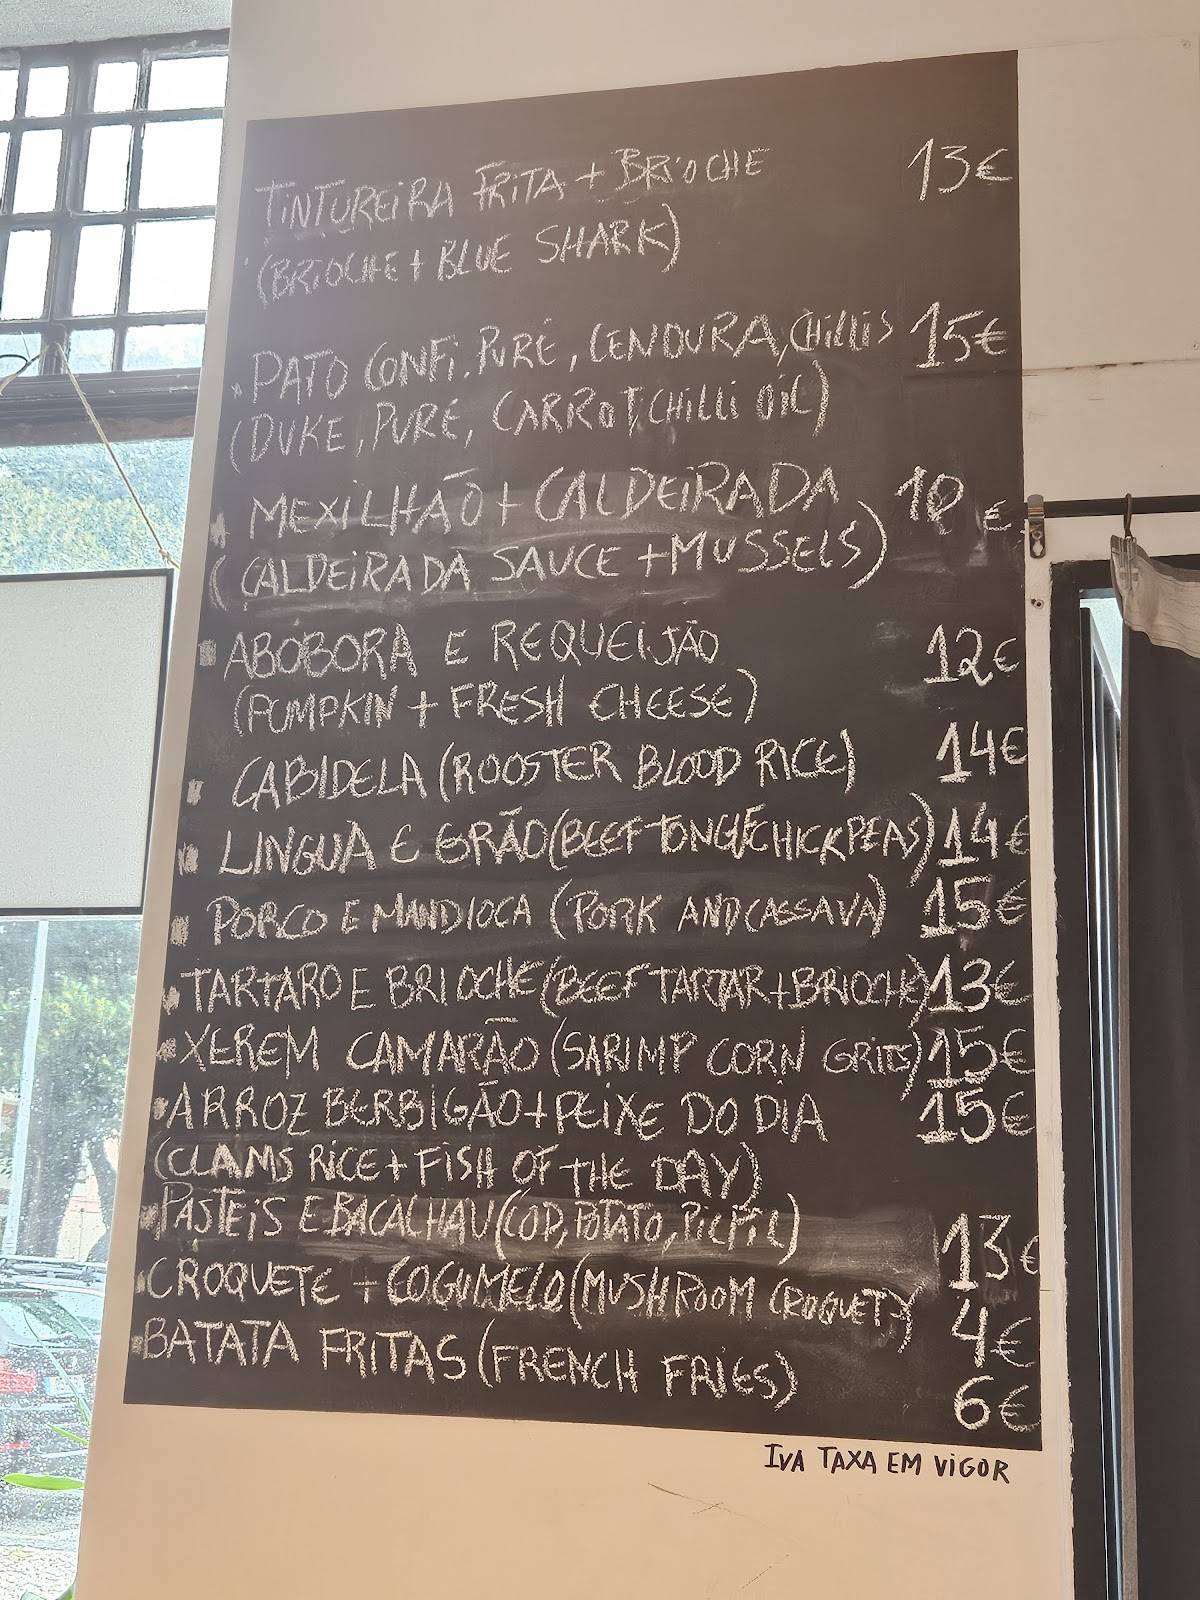 TINTUREIRA FRITA + BRIOCHE 13€
(BRIOCHE + BLUE SHARK)
PATO CONFI. PURÉ, CENOURA, CHILLIS 15€
(DUKE, PURÉ, CARROT, CHILLI OIL)
MEXILHÃO + CALDEIRADA €
(CALDEIRADA SAUCE + MUSSELS)
ABOBORA E REQUEIJÃO 12€
(PUMPKIN + FRESH CHEESE)
CABIDELA (ROOSTER BLOOD RICE) 14€
LINGUA E GRÃO (BEEF TONGUE CHICKPEAS) 14€
PORCO E MANDIOCA (PORK AND CASSAVA) 15€
TARTARO E BRIOCHE (BEEF TARTAR + BRIOCHE) 13€
XEREM CAMARÃO (SARIMP CORN GRITS) 15€
ARROZ BERBIGÃO + PEIXE DO DIA 15€
(CLAMS RICE + FISH OF THE DAY)
PASTEIS E BACALHAU (COD, POTATO, ) 13€
CROQUETE + COGUMELO (MUSHROOM CROQUET) 4€
BATATA FRITAS (FRENCH FRIES) 6€
IVA TAXA EM VIGOR